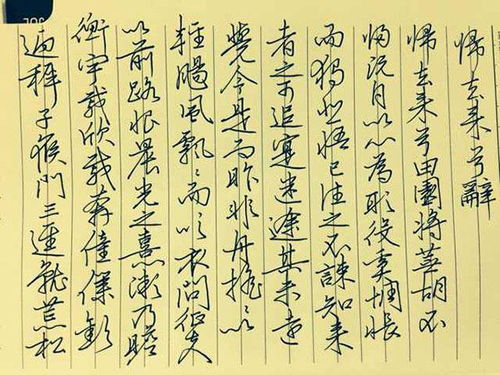 歸去来兮辭
歸去来兮田園将蕪胡不
歸既自以心為形役奚惆悵
而獨悲悟已往之不諫知来
者之可追寔迷途其未遠
覺今是而昨非舟摇〻以
輕颺風飄〻而吹衣問征夫
以前路恨晨光之熹微乃瞻
衡宇載欣載奔僮僕歡
迎稚子候門三逕就荒松